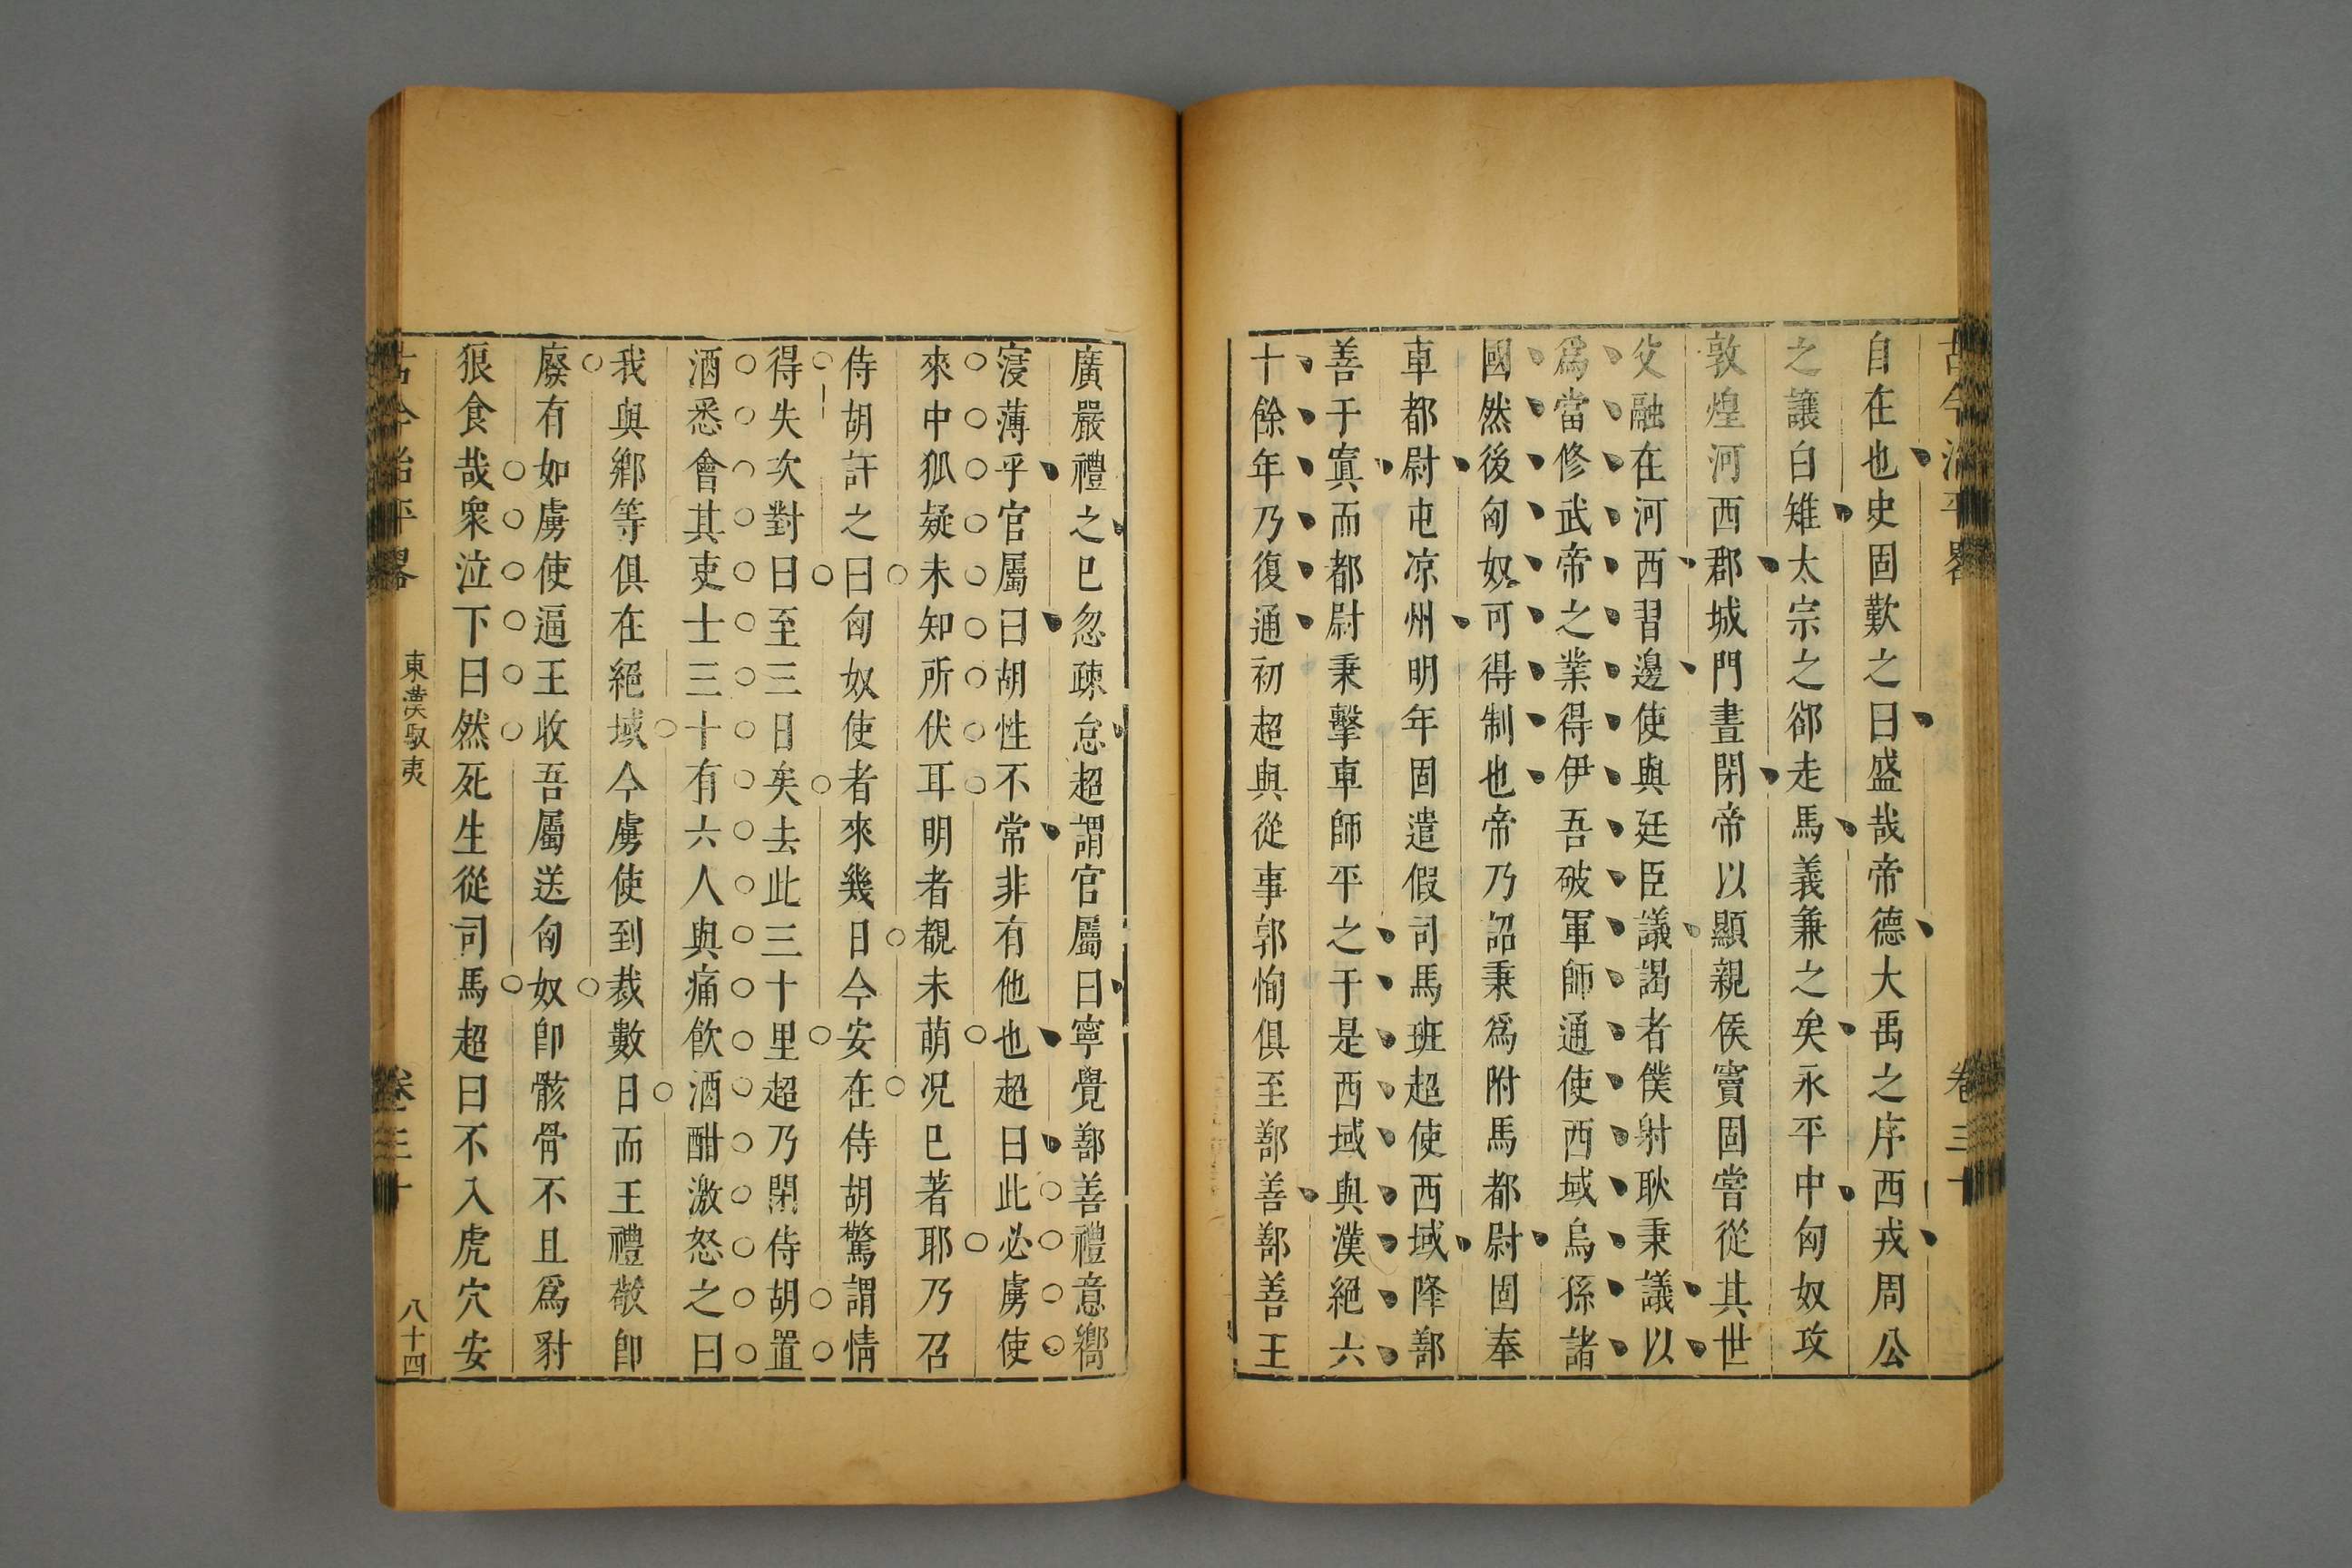 古今治平畧 卷三十
自在也史固歎之曰盛哉帝德大禹之序西戎周公
之讓白雉太宗之郤走馬義兼之矣永平中匈奴攻
敦煌河西郡城門晝閉帝以顯親侯竇固嘗從其世
父融在河西習邊使與廷臣議謁者僕射耿秉議以
爲當修武帝之業得伊吾破軍師通使西域烏孫諸
國然後匈奴可得制也帝乃詔秉爲附馬都尉固奉
車都尉屯凉州明年固遣假司馬班超使西域降鄯
善于寘而都尉秉擊車師平之于是西域與漢絕六
十餘年乃復通初超與從事郭恂俱至鄯善鄯善王
廣嚴禮之已忽疎怠超謂官屬曰寧覺鄯善禮意嚮
寖薄乎官屬曰胡性不常非有他也超曰此必虜使
來中狐疑未知所伏耳明者覩未萌况已著耶乃召
侍胡訐之曰匈奴使者來幾日今安在侍胡驚謂情
得失次對曰至三日矣去此三十里超乃閉侍胡置
酒悉會其吏士三十有六人與痛飲酒酣激怒之曰
我與鄕等俱在絕域今虜使到裁數日而王禮敬卽
廢有如虜使逼王收吾屬送匈奴卽骸骨不且爲豺
狼食哉衆泣下曰然死生從司馬超曰不入虎穴安
古今治平畧 東漢馭夷 卷三十 八十四